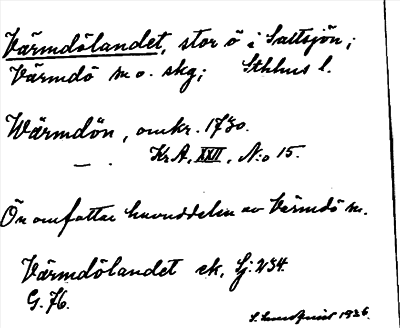 Värmdölandet, stor ö i Saltsjön;
Värmdö sn o. skg; Sthlms l.
Wärmdön, omkr. 1730.
— . KrA, XXII, N:o 15.
Ön omfattar huvuddelen av Värmdö sn.
Värmdölandet ek, Gj: 234.
G. 76.
S. Lundqvist 1926